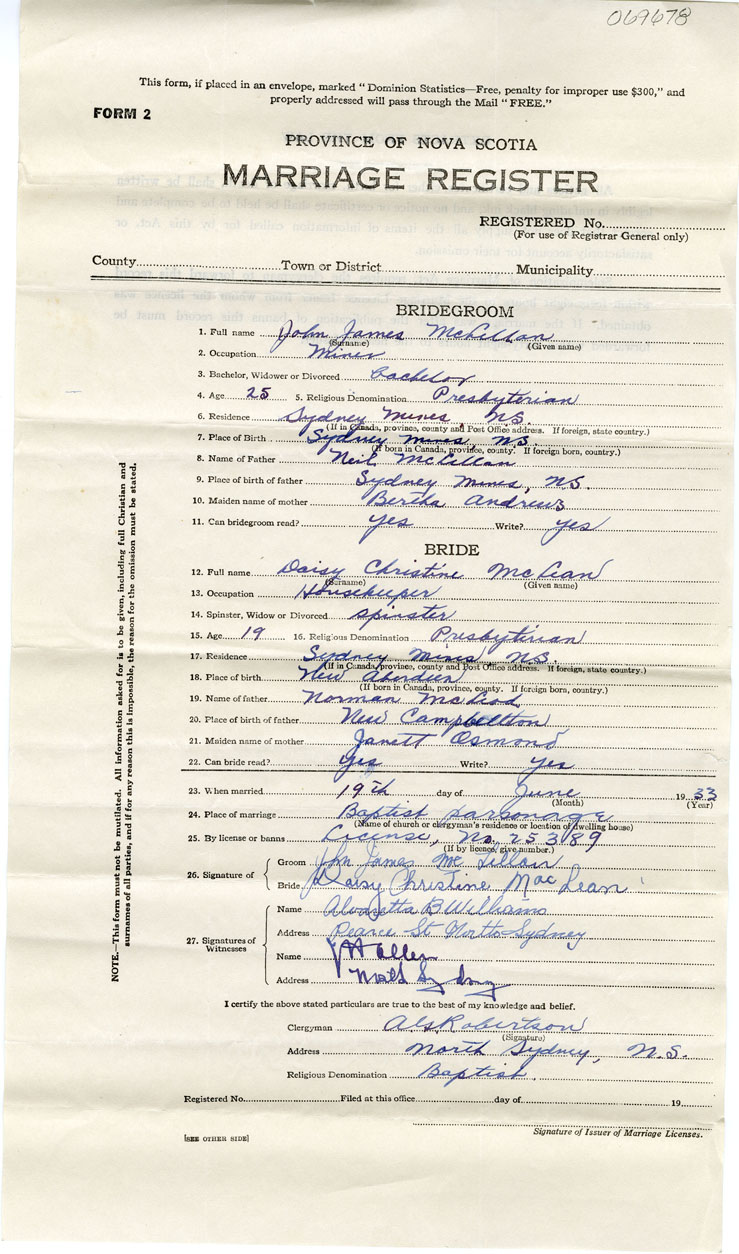 069678
This form, if placed in an envelope, marked "Dominion Statistics—Free, penalty for improper use $300," and
properly addressed will pass through the Mail "FREE."
FORM 2
PROVINCE OF NOVA SCOTIA
MARRIAGE REGISTER
REGISTERED No.
(For use of Registrar General only)
County Town or District Municipality
BRIDEGROOM
1. Full name John James McLellan
(Surname) (Given name)
2. Occupation Miner
3. Bachelor, Widower or Divorced bachelor
4. Age 25 5. Religious Denomination Presbyterian
6. Residence Sydney Mines, N.S.
(If in Canada, province, county and Post Office address. If foreign, state country.)
7. Place of Birth Sydney Mines, N.S.
(If born in Canada, province, county. If foreign born, country.)
8. Name of Father Neil McLellan
9. Place of birth of father Sydney Mines, N.S.
10. Maiden name of mother Bertha Andrews
11. Can bridegroom read? yes Write? yes
BRIDE
12. Full name Daisy Christine McLean
(Surname) (Given name)
13. Occupation Housekeeper
14. Spinster, Widow or Divorced spinster
15. Age 19 16. Religious Denomination Presbyterian
17. Residence Sydney Mines, N.S.
(If in Canada, province, county and Post Office address. If foreign, state country.)
18. Place of birth New Aberdeen
(If born in Canada, province, county. If foreign born, country.)
19. Name of father Norman McLeod
20. Place of birth of father New Campbellton
21. Maiden name of mother Janett Osmond
22. Can bride read? yes Write? yes
23. When married 19th day of June 1933
(Month) (Year)
24. Place of marriage Baptist parsonage
(Name of church or clergyman's residence or location of dwelling house)
25. By license or banns License, No. 25389
(If by licence, give number.)
26. Signature of Groom John James McLellan
Bride Daisy Christine MacLean
27. Signatures of Witnesses
Name Alvaretta B Williams
Address Pearce St North Sydney
Name
Address North Sydney
I certify the above stated particulars are true to the best of my knowledge and belief.
Clergyman Robertson
(Signature)
Address North Sydney, N.S.
Religious Denomination Baptist.
Registered No. Filed at this office day of 19
Signature of Issuer of Marriage Licenses.
[SEE OTHER SIDE]
NOTE.—This form must not be mutilated. All information asked for is to be given, including full Christian and
surnames of all parties, and if for any reason this is impossible, the reason for the omission must be stated.